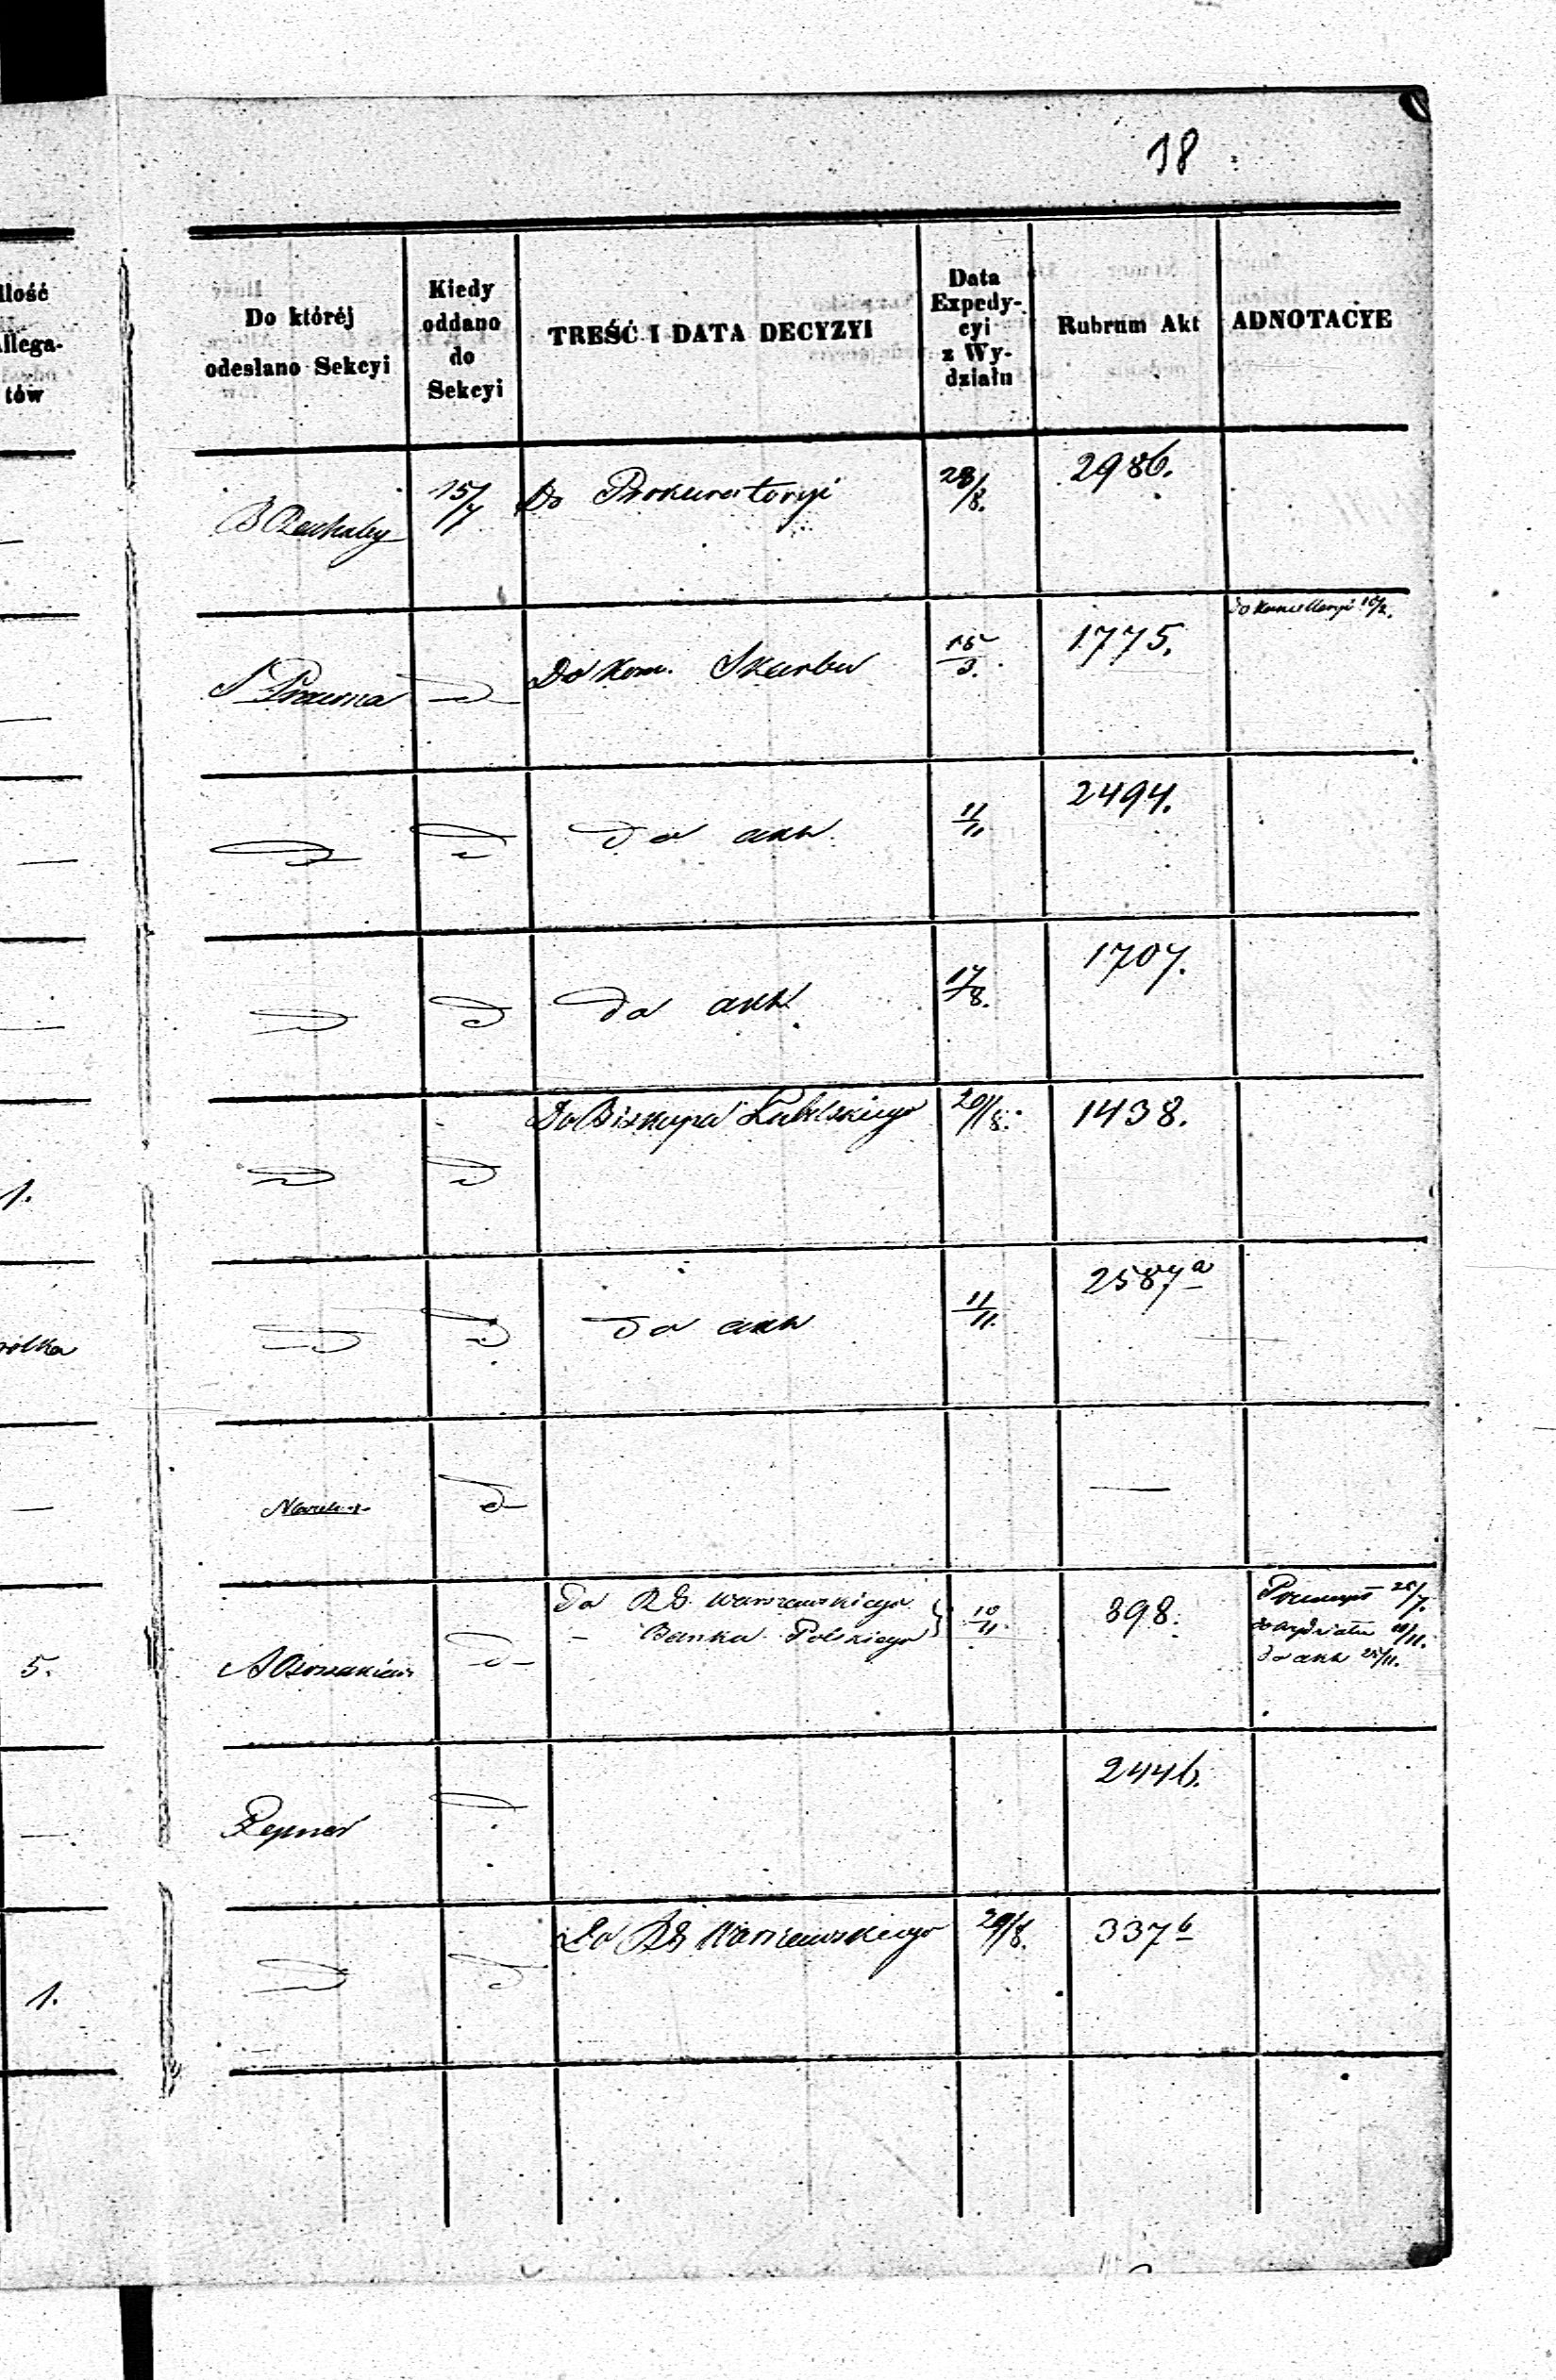 18
Ilość
Allega-
tów
Do któréj
odesłano Sekcyi
Kiedy
oddano
do
Sekcyi
TREŚĆ I DATA DECYZYI
Data
Expedy-
cyi
z Wy-
działu
Rubrum Akt
ADNOTACYE
15/7 Do Prokuratoryi 28/8. 2986.
do Kancellaryi
Do Kom. Skarbu 15/3. 1775.
do akt 11/11 2494.
do akt 17/8. 1707.
1. Do Biskupa Lubelskiego 20/8. 1438.
do akt 11/11. 2587a
5. do RG. Warszawskiego
– Banku Polskiego 10/11. 898.
do wydziału
do akt 25/11.
2446.
1. Do RG Warszawskiego 29/8. 337b